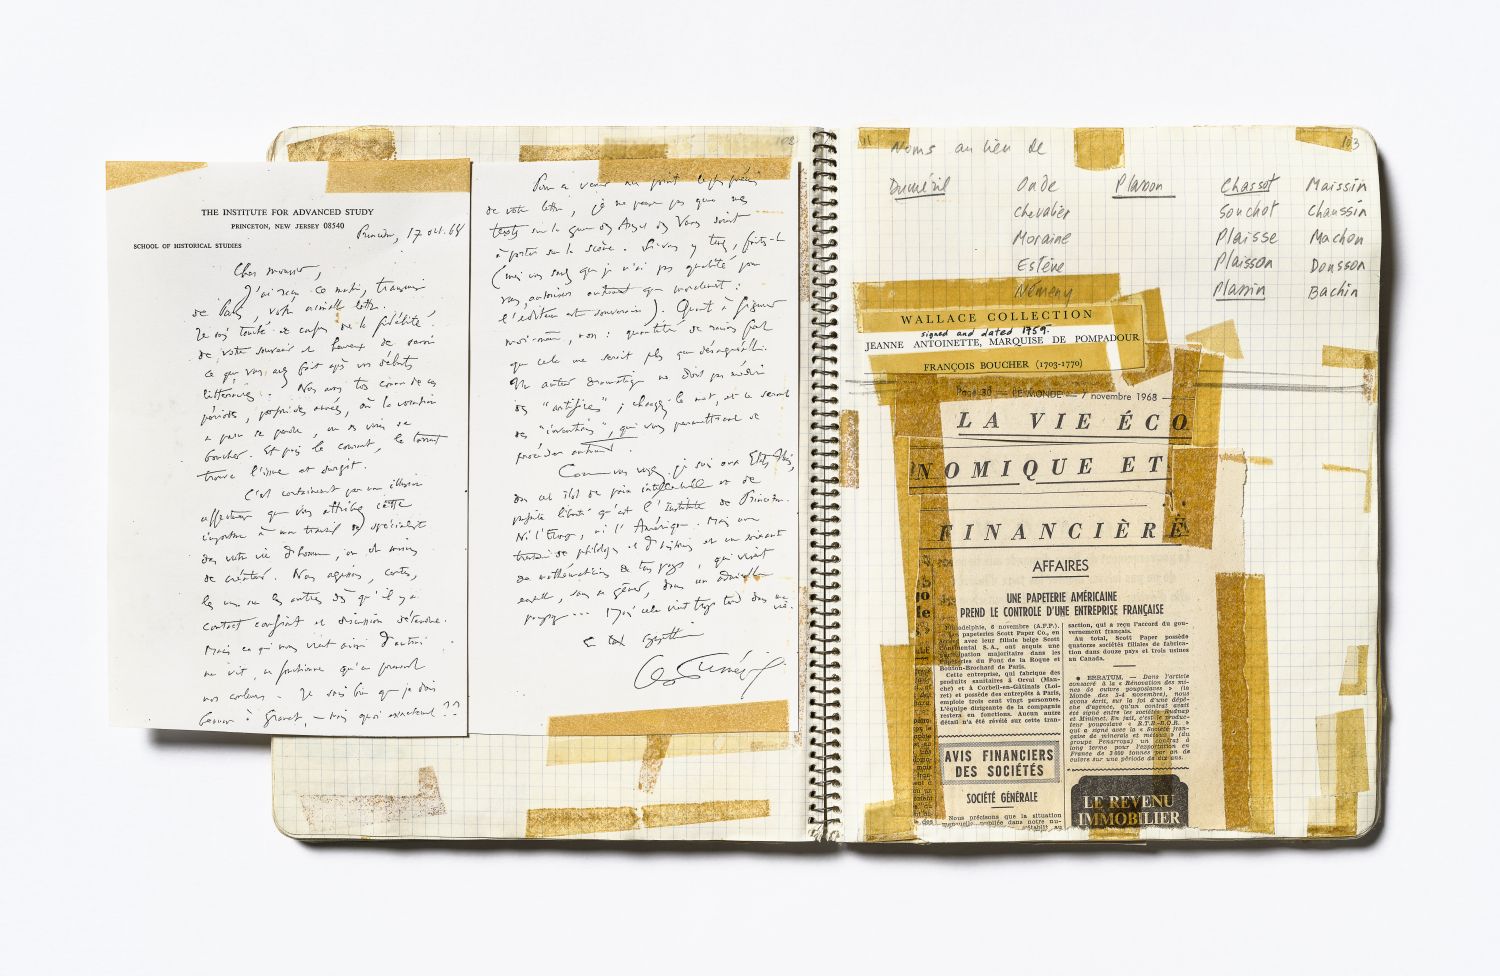 THE INSTITUTE FOR ADVANCED STUDY
PRINCETON, NEW JERSEY 08540
SCHOOL OF HISTORICAL STUDIES
Princeton, 17 oct. 68
Cher monsieur,
J'ai reçu ce matin, transmise
de Paris, votre aimable lettre.
Je suis touché de la fidélité
de votre souvenir et heureux de savoir
ce que vous avez fait après vos débuts
littéraires. Nous avons tous connu de ces
périodes, où la vocation
a paru se perdre, ou
boucher. Et puis le courant, le torrent
trouve l'issue et surgit.
C'est certainement par une illusion
affectueuse que vous attribuez cette
importance à mon travail de spécialiste
dans votre vie d'homme, ou du moins
de créateur. Nous agissons, certes,
les uns sur les autres dès qu'il y a
contact confiant et discussion détendue.
Mais ce qui nous vient ainsi d'autrui
ne vit, ne fructifie qu'en prenant
nos couleurs. Je sais bien que je dois
à Granet, – mais quoi exactement ??
Pour en venir au point le plus précis
de votre lettre, je ne pense pas que mes
textes sur la guerre des Ases et des Vanes soient
à porter sur la scène. Si vous y tenez, faites-le
(mais vous savez que je n'ai pas qualité pour
vous autoriser autrement que moralement :
l'éditeur est souverain). Quant à figurer
moi-même, non : quantité de raisons font
que cela me serait plus que désagréable.
Un auteur dramatique ne doit pas médire
des "artifices" ; changez le mot, et ce seront
des "inventions", qui vous permettront de
procéder autrement.
Comme vous voyez, je suis aux Etats-Unis,
dans cet îlot de paix intellectuelle et de
parfaite liberté qu'est l'Institute de Princeton.
Ni l'Europe, ni l'Amérique. Mais une
trentaine de philologues et d'historiens et une soixantaine
de mathématiciens de tous pays, qui vivent
ensemble, sans se gêner, dans un admirable
paysage... Mais cela vient trop tard dans ma
vie.
G. Dumézil
102
103
Noms au lieu de
Duméril Onde Plaron Chassot Maissin
Chevalier Souchot Chaussin
Moraine Plaisse Machon
Estève Plaisson Dousson
Némeny Plassin Bachin
WALLACE COLLECTION
signed and dated 1759.
JEANNE ANTOINETTE, MARQUISE DE POMPADOUR
FRANÇOIS BOUCHER (1703-1770)
Page 30 — LE MONDE — 7 novembre 1968 —
LA VIE ÉCO
NOMIQUE ET
FINANCIÈRE
AFFAIRES
UNE PAPETERIE AMÉRICAINE
PREND LE CONTROLE D'UNE ENTREPRISE FRANÇAISE
Philadelphie, 6 novembre (A.F.P.). —
Les papeteries Scott Paper Co., en
accord avec leur filiale belge Scott
Continental S.A., ont acquis une
participation majoritaire dans les
Papeteries du Pont de la Roque et
Bouton-Brochard de Paris.
Cette entreprise, qui fabrique des
produits sanitaires à Orval (Man-
che) et à Corbeil-en-Gâtinais (Loi-
ret) et possède des entrepôts à Paris,
emploie trois cent vingt personnes.
L'équipe dirigeante de la compagnie
restera en fonctions. Aucun autre
détail n'a été révélé sur cette tran-
saction, qui a reçu l'accord du gou-
vernement français.
Au total, Scott Paper possède
quatorze sociétés filiales de fabrica-
tion dans douze pays et trois usines
au Canada.
● ERRATUM. — Dans l'article
consacré à la « Rénovation des mi-
nes de cuivre yougoslaves » (le
Monde des 3-4 novembre), nous
avons écrit, sur la foi d'une dépê-
che d'agence, qu'un contrat avait
été signé entre les sociétés Rudnap
et Minimet. En fait, c'est le produc-
teur yougoslave « R.T.B.-B.O.R. »
qui a signé avec la « Société fran-
çaise de minerais et métaux » (du
groupe Penarroya) un contrat à
long terme pour l'exportation en
France de 3 600 tonnes par an de
cuivre sur une période de dix ans.
AVIS FINANCIERS
DES SOCIÉTÉS
SOCIÉTÉ GÉNÉRALE
Nous précisons que la situation
mensuelle publiée dans notre nu-
LE REVENU
IMMOBILIER